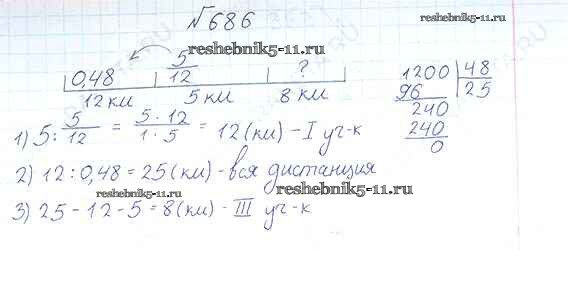 №686
5/12
0,48 ?
12 км 5 км 8 км
1) 5 : 5/12 = 5 · 12 / 1 · 5 = 12 (км) – I уч-к
2) 12 : 0,48 = 25 (км) - вся дистанция
3) 25 - 12 - 5 = 8 (км) - III уч-к
1200 | 48
96 | 25
240
240
0
reshebnik5-11.ru
reshebnik5-11.ru
reshebnik5-11.ru
reshebnik5-11.ru
reshebnik5-11.ru